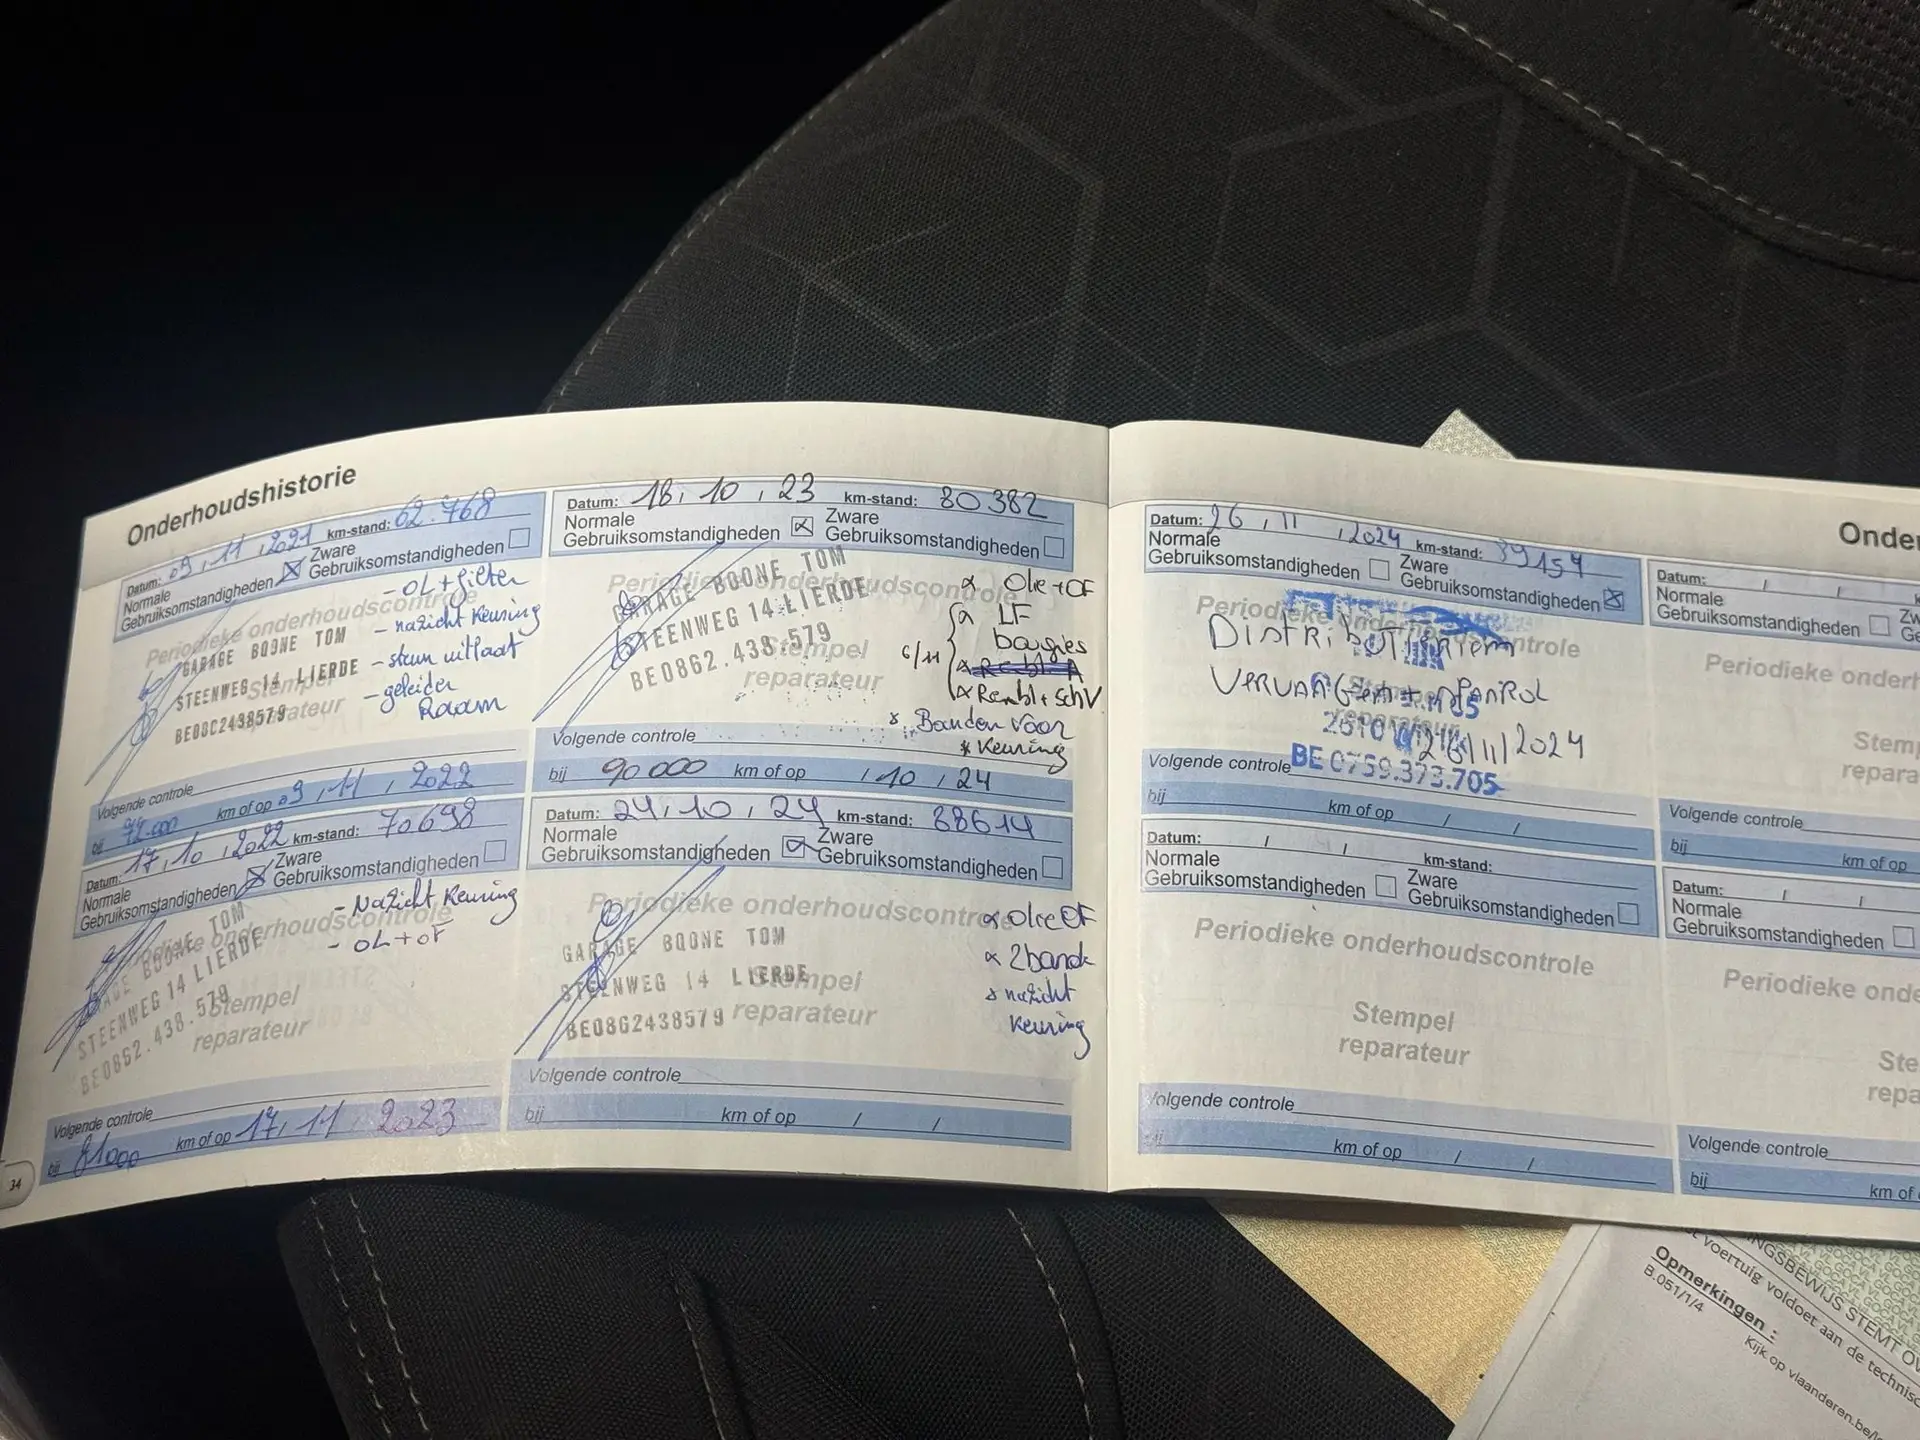 Onderhoudshistorie
Datum: 09, 11, 2021 km-stand: 62.768
Normale
Gebruiksomstandigheden
Zware
Gebruiksomstandigheden
Periodieke onderhoudscontrole
Stempel
reparateur
GARAGE BOONE TOM
STEENWEG 14 LIERDE
- OL + filter
- nazicht Keuring
- steun uitlaat
- geleider
Raam
Volgende controle
bij km of op 09, 11, 2022
Datum: 17, 10, 2022 km-stand: 70698
Normale
Gebruiksomstandigheden
Zware
Gebruiksomstandigheden
Periodieke onderhoudscontrole
Stempel
reparateur
TOM
STEENWEG 14 LIERDE
BE0862.438.579
- Nazicht Keuring
- OL + OF
Volgende controle
bij 81000 km of op 17, 11, 2023
34
Datum: 18, 10, 23 km-stand: 80382
Normale
Gebruiksomstandigheden
Zware
Gebruiksomstandigheden
Periodieke onderhoudscontrole
Stempel
reparateur
GARAGE BOONE TOM
STEENWEG 14 LIERDE
BE0862.438.579
Olie + OF
LF
bougies
6/11
Rembl + schV
* Banden Voor
* Keuring
Volgende controle
bij 90 000 km of op / 10, 24
Datum: 24, 10, 24 km-stand: 88614
Normale
Gebruiksomstandigheden
Zware
Gebruiksomstandigheden
Periodieke onderhoudscontrole
Stempel
reparateur
GARAGE BOONE TOM
STEENWEG 14 LIERDE
BE0862438579
Olie OF
2 band
nazicht
Keuring
Volgende controle
bij km of op / /
Datum: 26, 11, 2024 km-stand: 89154
Normale
Gebruiksomstandigheden
Zware
Gebruiksomstandigheden
Periodieke onderhoudscontrole
Stempel
reparateur
Distributieriem
26/11/2024
BE 0759.373.705
Volgende controle
bij km of op / /
Datum: / / km-stand:
Normale
Gebruiksomstandigheden
Zware
Gebruiksomstandigheden
Periodieke onderhoudscontrole
Stempel
reparateur
Volgende controle
km of op / /
Onder
Datum: / /
Normale
Gebruiksomstandigheden
Zw
Ge
Periodieke onderh
Stemp
repara
Volgende controle
bij km of op
Datum: / /
Normale
Gebruiksomstandigheden
Periodieke onde
Ste
repa
Volgende controle
bij km of
INGSBEWIJS STEMT OV
voertuig voldoet aan de technisc
Opmerkingen :
B.051/1/4
Kijk op vlaanderen.be/